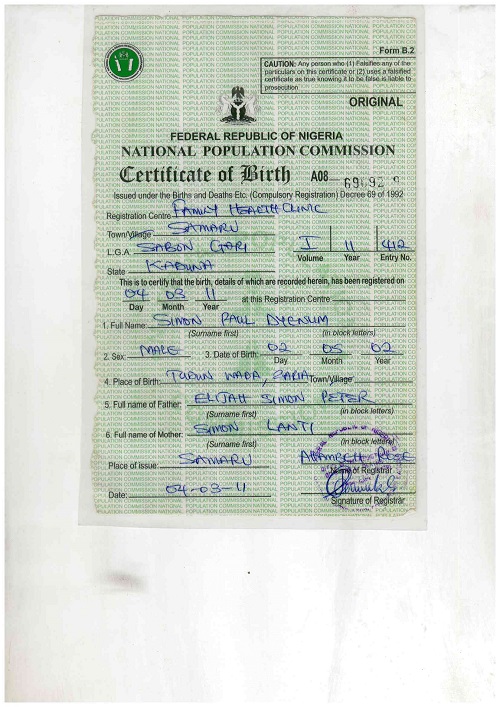 Form B.2
CAUTION: Any person who (1) Falsifies any of the
particulars on this certificate or (2) uses a falsified
certificate as true knowing it to be false is liable to
prosecution
ORIGINAL
FEDERAL REPUBLIC OF NIGERIA
NATIONAL POPULATION COMMISSION
Certificate of Birth A08
Issued under the Births and Deaths Etc. (Compulsory Registration) Decree 69 of 1992
Registration Centre FAMILY HEALTH CLINIC
Town/Village SAMARU
L.G.A SABON GARI I 11 412
Volume Year Entry No.
State KADUNA
This is to certify that the birth, details of which are recorded herein, has been registered on
04 03 11 at this Registration Centre
Day Month Year
1. Full Name: SIMON PAUL
(Surname first) (in block letters)
2. Sex: MALE 3. Date of Birth: 02 05 02
Day Month Year
4. Place of Birth: TUDUN WADA, ZARIA Town/Village
5. Full name of Father: ELIJAH SIMON PETER
(Surname first) (in block letters)
6. Full name of Mother: SIMON LANTI
(Surname first) (in block letters)
Place of issue: SAMARU ROSE
Name of Registrar
Date: 04-03-11
Signature of Registrar